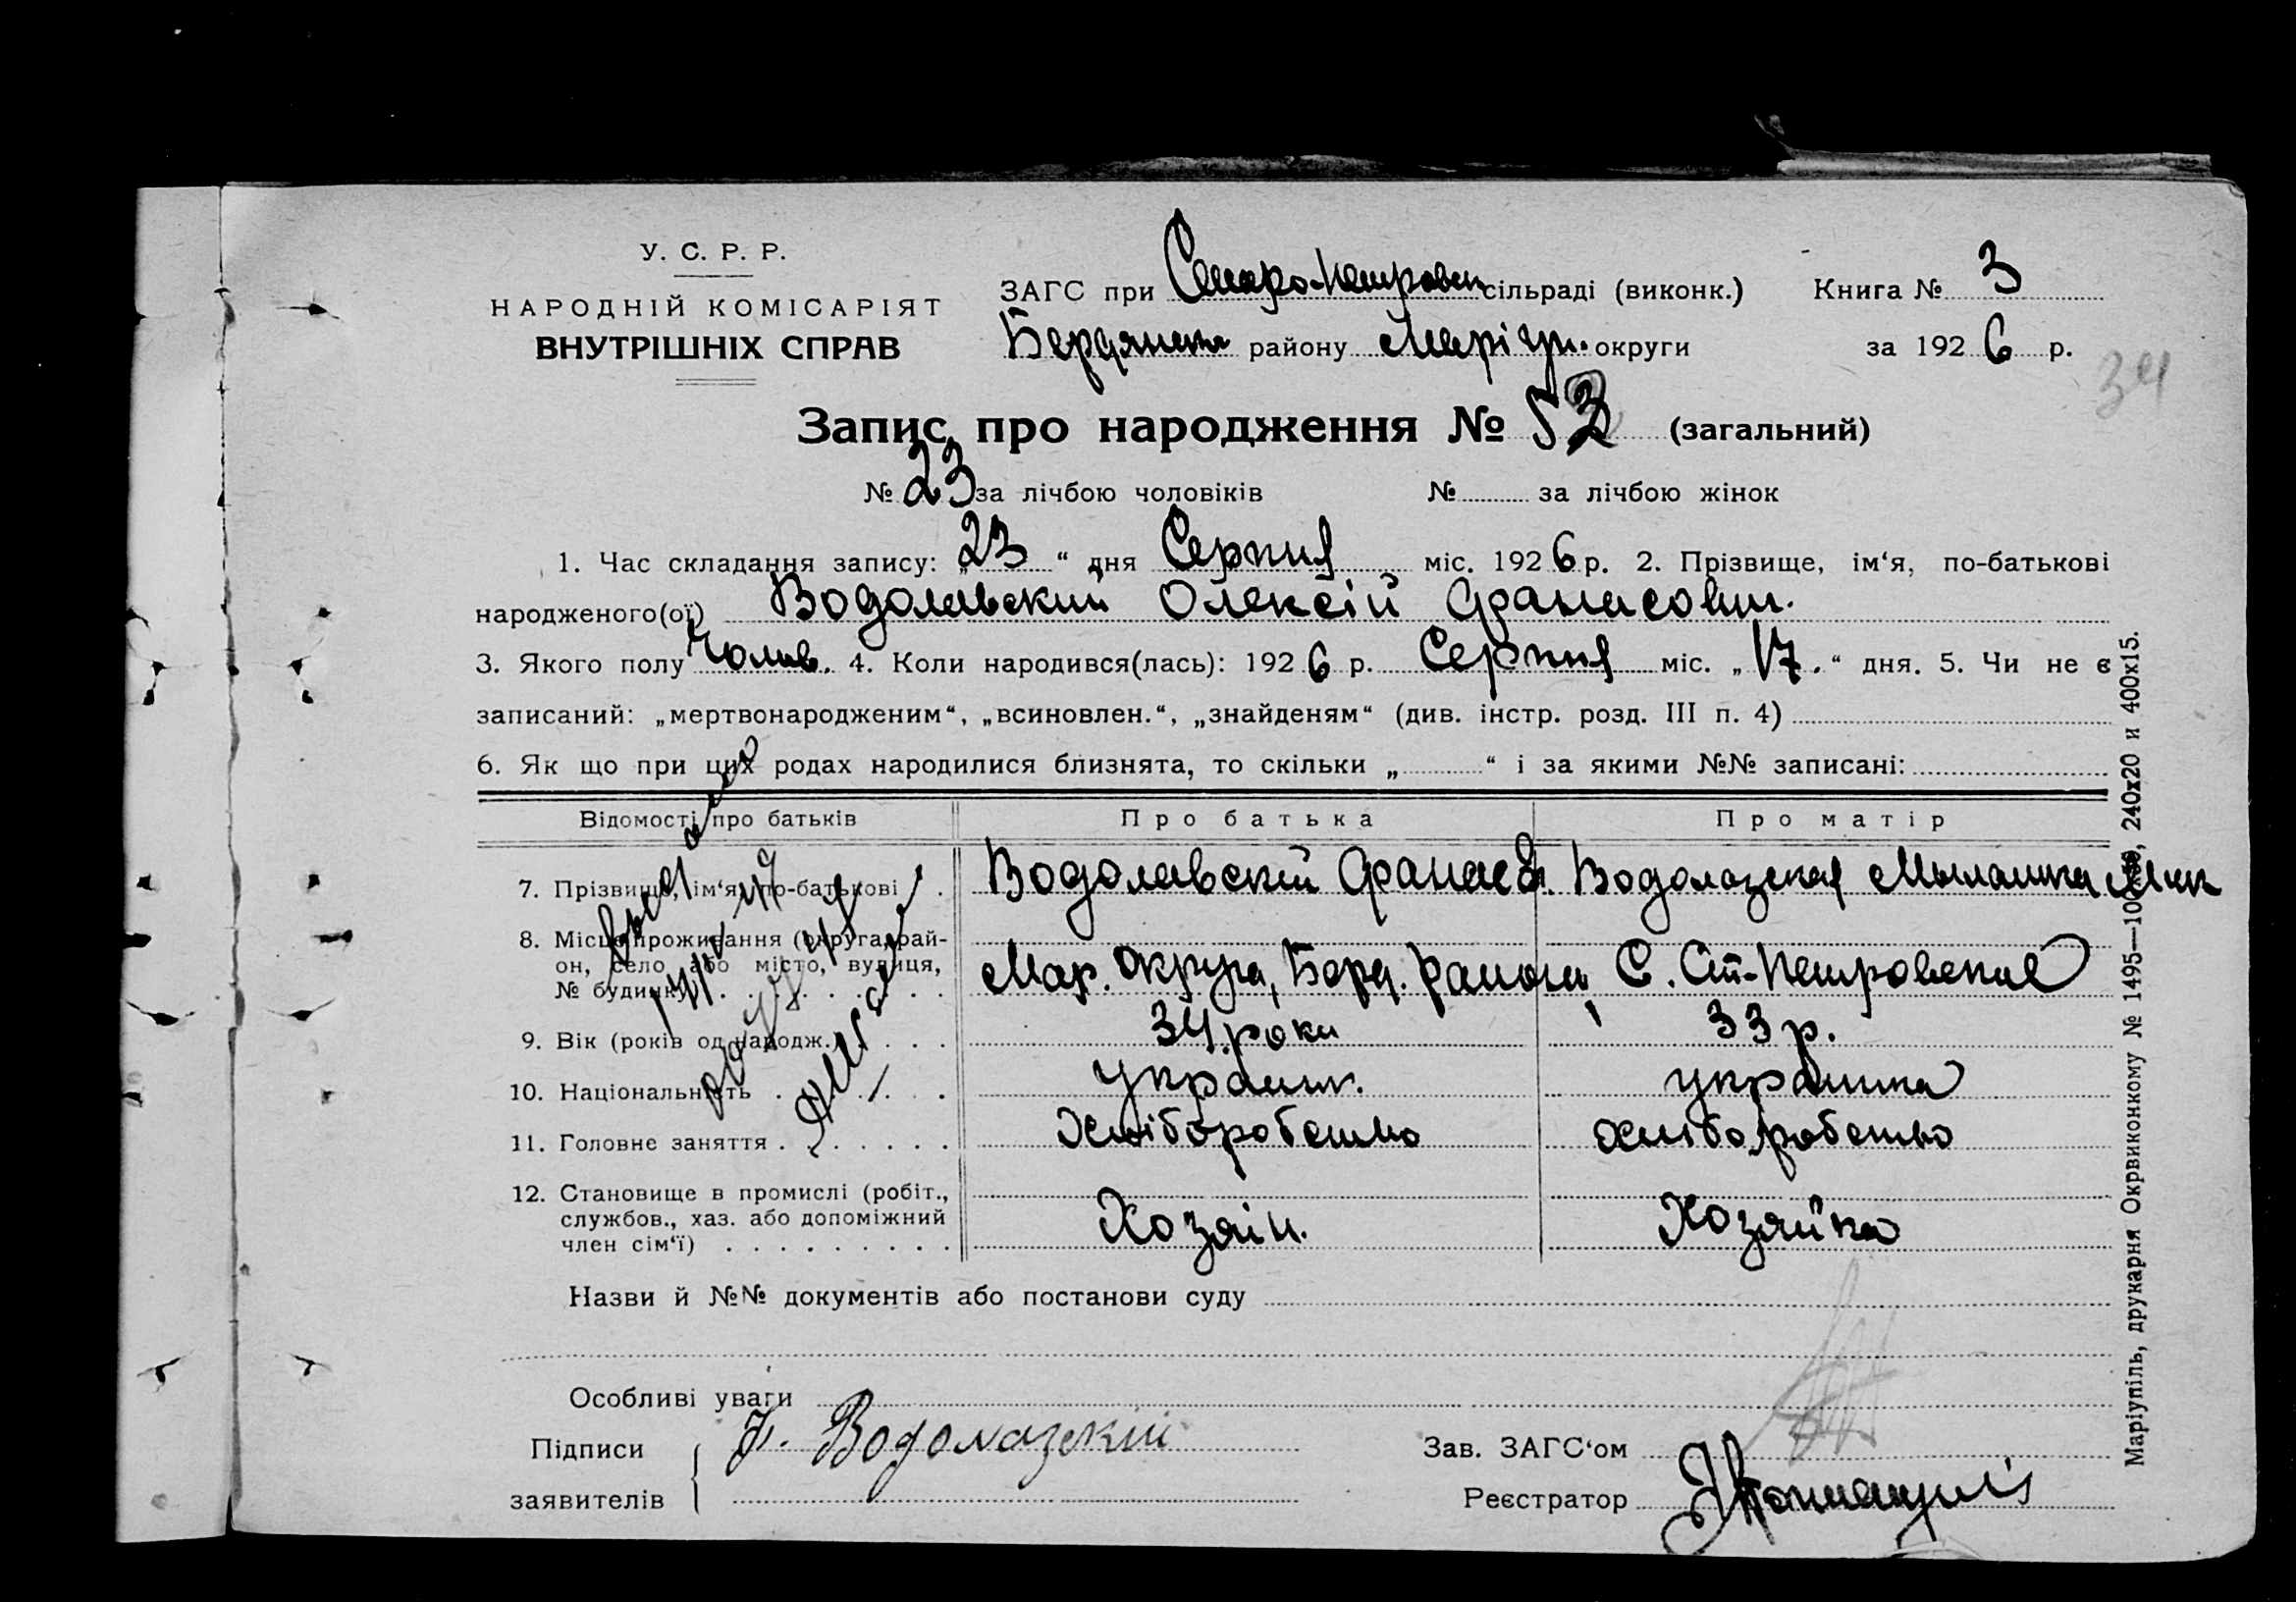 У. С. Р. Р.
НАРОДНІЙ КОМІСАРІЯТ
ВНУТРІШНІХ СПРАВ
ЗАГС при Старо-Петровск сільраді (виконк.) Книга № 3
Бердянськ району Маріуп. округи за 1926 р.
34
Запис про народження № 53 (загальний)
№ 23 за лічбою чоловіків № за лічбою жінок
1. Час складання запису: „23“ дня Серпня міс. 1926 р. 2. Прізвище, ім‘я, по-батькові
народженого(ої) Водолавский Олексій Афанасович.
3. Якого полу Чолов. 4. Коли народився(лась): 1926 р. Серпня міс. „17.“ дня. 5. Чи не є
записаний: „мертвонародженим“, „всиновлен.“, „знайденям“ (див. інстр. розд. III п. 4)
6. Як що при цих родах народилися близнята, то скільки „ “ і за якими №№ записані:
Відомості про батьків Про батька Про матір
7. Прізвище, ім‘я, по-батькові . Водолавский Афанас Водолазская Мыланка Мик
8. Місце проживання (округа, рай-
он, село або місто, вулиця,
№ будинку) Мар. округа, Берд. району, С. Ст-Петровское
9. Вік (років од народж.) 34 роки 33 р.
10. Національність украин. украинка
11. Головне заняття Хліборобство хліборобство
12. Становище в промислі (робіт.,
службов., хаз. або допоміжний
член сім‘ї) Хозяін. Хозяйка
Назви й №№ документів або постанови суду
Особливі уваги
Підписи Водолазский Зав. ЗАГС‘ом
заявителів Реєстратор
Маріупіль, друкарня Окрвиконкому № 1495—10000, 240х20 и 400х15.